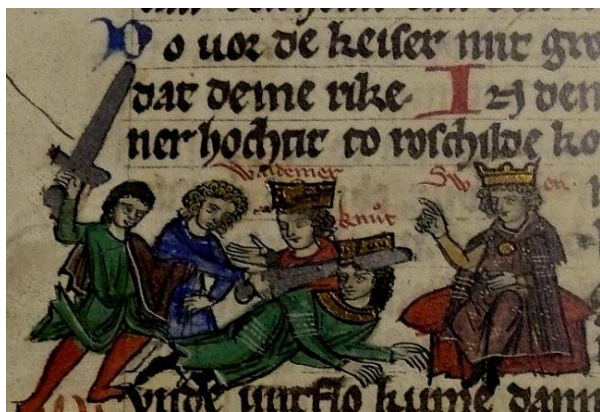 Do uor de keiser mit gro
dat deme rike. In den
ner hochtit to roschilde ko
waldemer
Sw en
knůt
vnde untflo kume dann